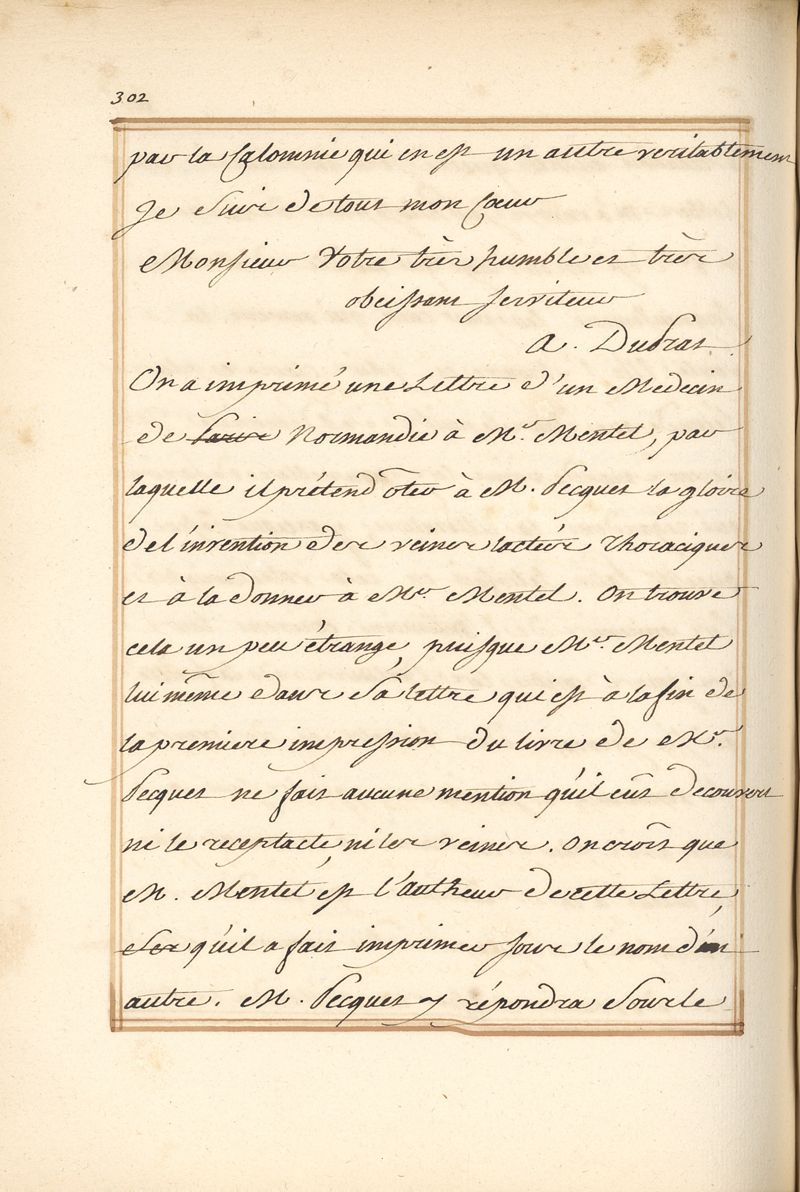 302
par la Calomnie qui en est un autre veritablement
Je suis de tout mon Cœur
Monsieur Votre très humble et très
obeissant serviteur
A. Duprat
On a imprimé une Lettre d'un Medecin
de Paris Normandie à Mr. Mentel, par
laquelle il prétend ôter à M. Pecquet la gloire
de l'invention des veines lactées Thoraciques
et à la donner à Mr. Mentel. On trouve
cela un peu étrange, puisque Mr. Mentel
lui même dans sa lettre qui est à la fin de
la premiere impression du livre de Mr.
Pecquet ne fait aucune mention qu'il eût decouvert
ni le receptacle, ni les veines. On croit que
M. Mentel est l'autheur de cette Lettre,
qu'il a fait imprimer sous le nom d'un
autre. M. Pecquet y répondra sous le